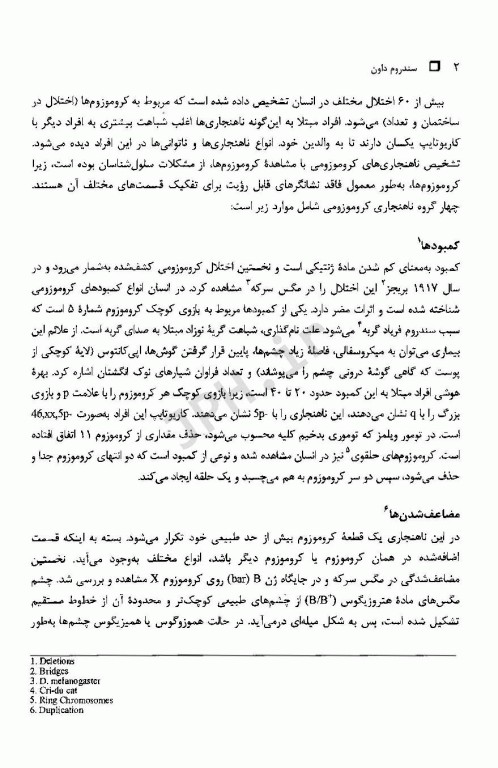 ۲ ❒ سندروم داون
بیش از ۶۰ اختلال مختلف در انسان تشخیص داده شده است که مربوط به کروموزوم‌ها (اختلال در
ساختمان و تعداد) می‌شود. افراد مبتلا به این‌گونه ناهنجاری‌ها اغلب شباهت بیشتری به افراد دیگر با
کاریوتایپ یکسان دارند تا به والدین خود. انواع ناهنجاری‌ها و ناتوانی‌ها در این افراد دیده می‌شود.
تشخیص ناهنجاری‌های کروموزومی با مشاهدهٔ کروموزوم‌ها، از مشکلات سلول‌شناسان بوده است، زیرا
کروموزوم‌ها، به‌طور معمول فاقد نشانگرهای قابل رؤیت برای تفکیک قسمت‌های مختلف آن هستند.
چهار گروه ناهنجاری کروموزومی شامل موارد زیر است:
کمبودها۱
کمبود به‌معنای کم شدن مادهٔ ژنتیکی است و نخستین اختلال کروموزومی کشف‌شده به‌شمار می‌رود و در
سال ۱۹۱۷ بریجز۲ این اختلال را در مگس سرکه۳ مشاهده کرد. در انسان انواع کمبودهای کروموزومی
شناخته شده است و اثرات مضر دارد. یکی از کمبودها مربوط به بازوی کوچک کروموزوم شمارهٔ ۵ است که
سبب سندروم فریاد گربه۴ می‌شود. علت نام‌گذاری، شباهت گریهٔ نوزاد مبتلا به صدای گربه است. از علائم این
بیماری می‌توان به میکروسفالی، فاصلهٔ زیاد چشم‌ها، پایین قرار گرفتن گوش‌ها، اپی‌کانتوس (لایهٔ کوچکی از
پوست که گاهی گوشهٔ درونی چشم را می‌پوشاند) و تعداد فراوان شیارهای نوک انگشتان اشاره کرد. بهرهٔ
هوشی افراد مبتلا به این کمبود حدود ۲۰ تا ۴۰ است، زیرا بازوی کوچک هر کروموزوم را با علامت p و بازوی
بزرگ را با q نشان می‌دهند، این ناهنجاری را با 5p- نشان می‌دهند. کاریوتایپ این افراد به‌صورت 46,xx,5p-
است. در تومور ویلمز که توموری بدخیم کلیه محسوب می‌شود، حذف مقداری از کروموزوم ۱۱ اتفاق افتاده
است. کروموزوم‌های حلقوی۵ نیز در انسان مشاهده شده و نوعی از کمبود است که دو انتهای کروموزوم جدا و
حذف می‌شود، سپس دو سر کروموزوم به هم می‌چسبد و یک حلقه ایجاد می‌کند.
مضاعف‌شدن‌ها۶
در این ناهنجاری یک قطعهٔ کروموزوم بیش از حد طبیعی خود تکرار می‌شود. بسته به اینکه قسمت
اضافه‌شده در همان کروموزوم یا کروموزوم دیگر باشد، انواع مختلف به‌وجود می‌آید. نخستین
مضاعف‌شدگی در مگس سرکه و در جایگاه ژن B (bar) روی کروموزوم X مشاهده و بررسی شد. چشم
مگس‌های مادهٔ هتروزیگوس (B/B+) از چشم‌های طبیعی کوچک‌تر و محدودهٔ آن از خطوط مستقیم
تشکیل شده است، پس به شکل میله‌ای درمی‌آید. در حالت هموزوگوس یا همیزیگوس چشم‌ها به‌طور
1. Deletions
2. Bridges
3. D. melanogaster
4. Cri-du cat
5. Ring Chromosomes
6. Duplication